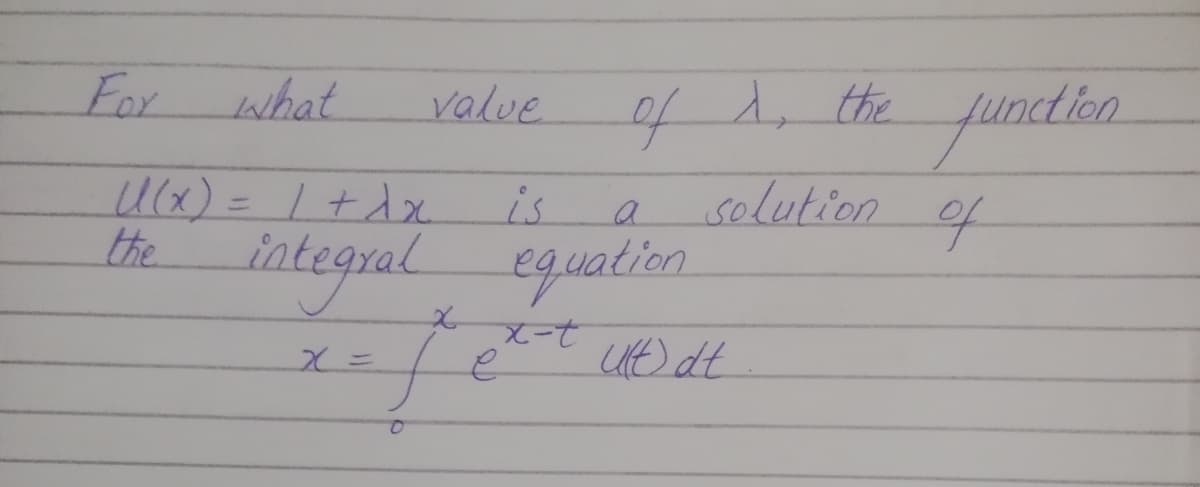 For what value of λ, the function
U(x) = 1 + λx is a solution of
the integral equation
x = ∫₀ˣ eˣ⁻ᵗ u(t) dt.